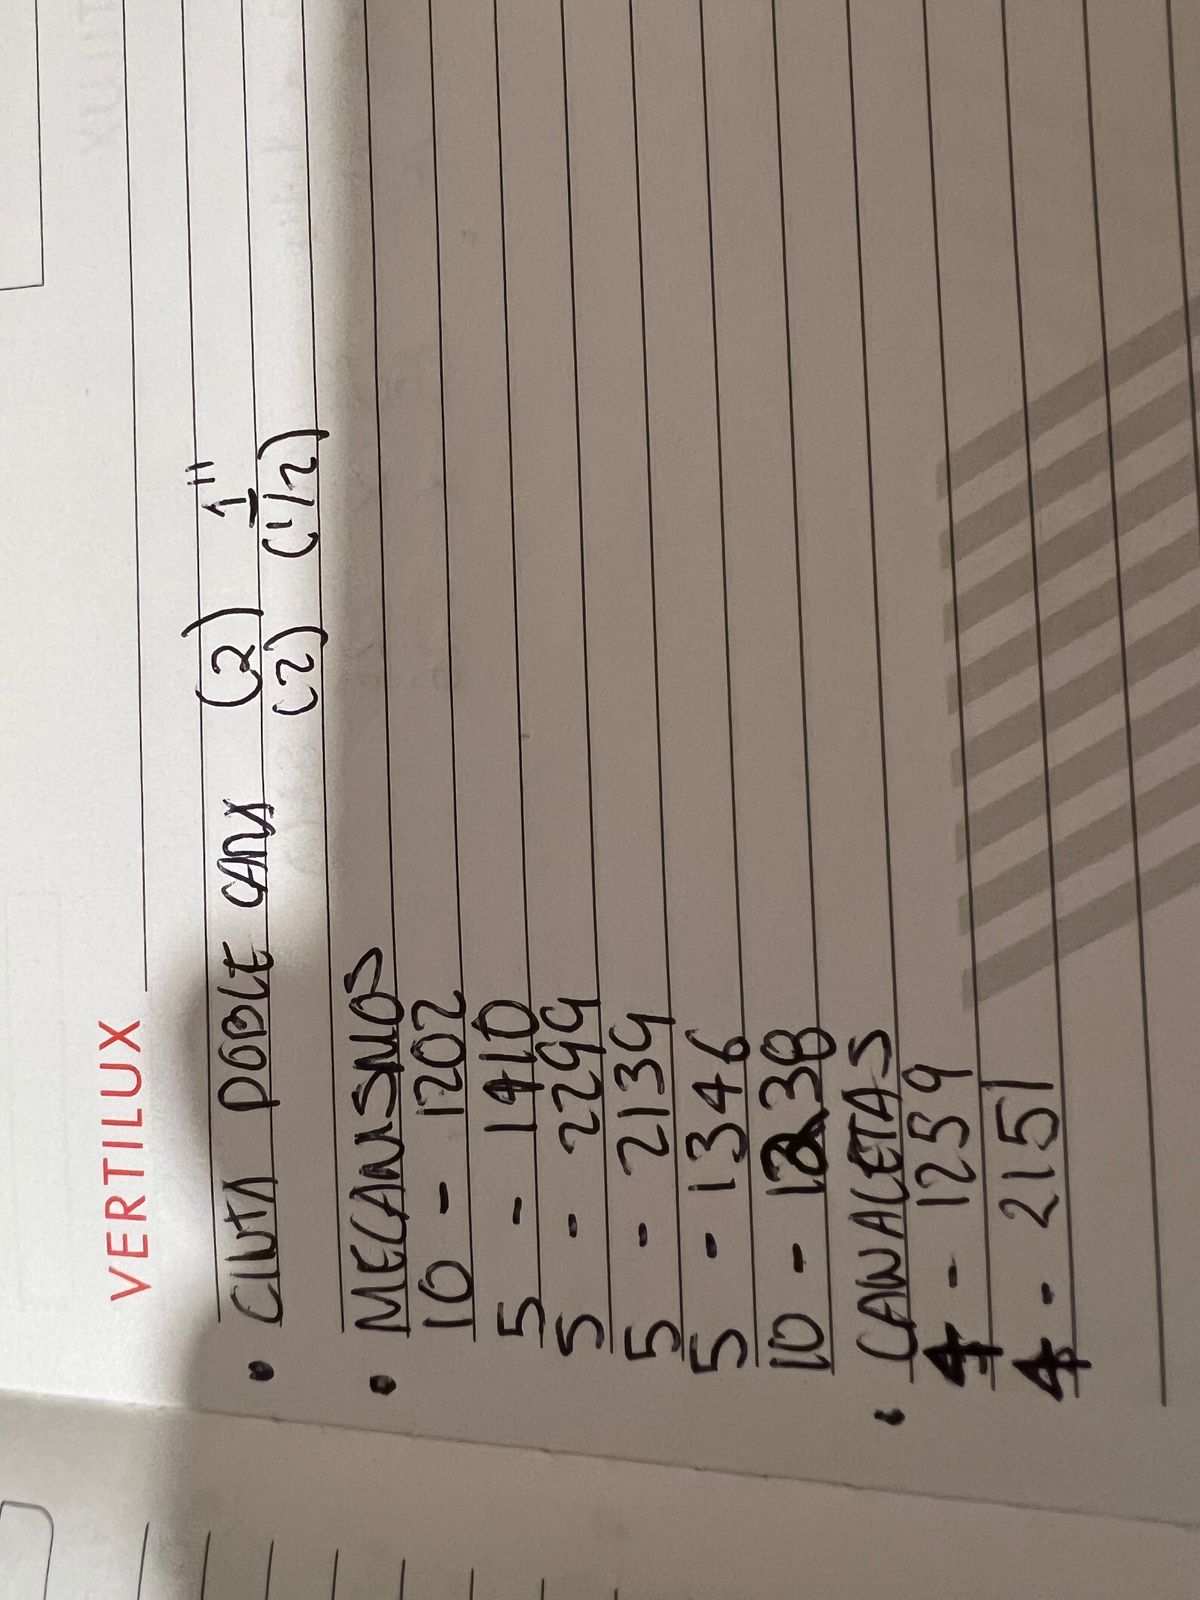 VERTILUX
• CINTA DOBLE CARA (2) 1"
(2) (1/2)
• MECANISMOS
10 - 1202
5 - 1410
5 - 2299
5 - 2139
5 - 1346
10 - 1238
• CANALETAS
4 - 1259
4 - 2151